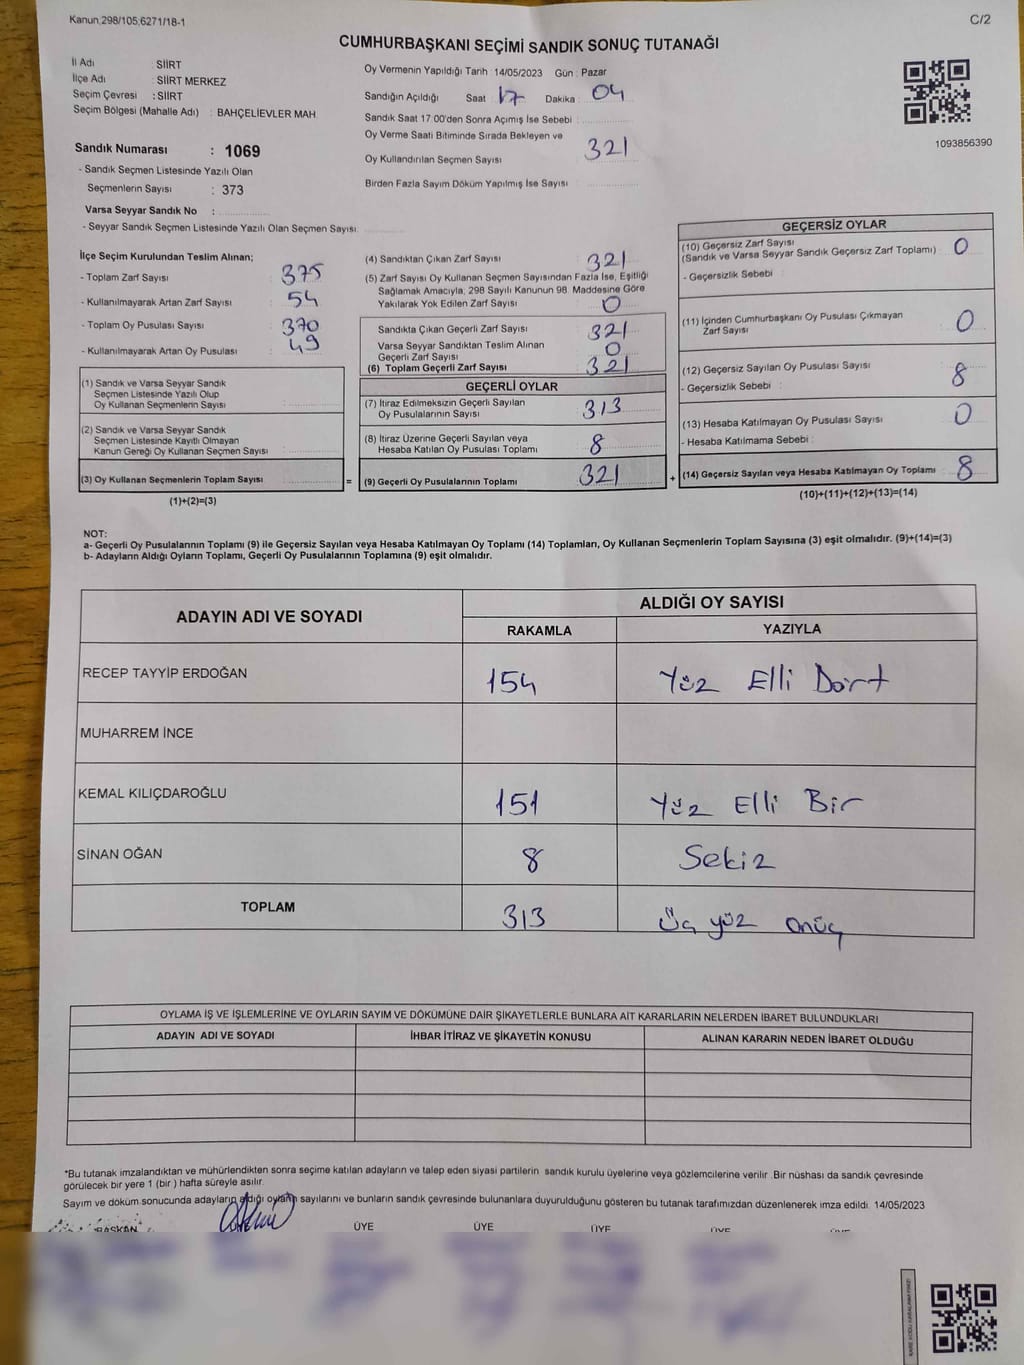 Kanun,298/105;6271/18-1
C/2
CUMHURBAŞKANI SEÇİMİ SANDIK SONUÇ TUTANAĞI
İl Adı : SİİRT
İlçe Adı : SİİRT MERKEZ
Seçim Çevresi : SİİRT
Seçim Bölgesi (Mahalle Adı) : BAHÇELİEVLER MAH.
Sandık Numarası : 1069
- Sandık Seçmen Listesinde Yazılı Olan
Seçmenlerin Sayısı : 373
Varsa Seyyar Sandık No :
- Seyyar Sandık Seçmen Listesinde Yazılı Olan Seçmen Sayısı:
Oy Vermenin Yapıldığı Tarih : 14/05/2023 Gün : Pazar
Sandığın Açıldığı Saat 17 Dakika : 04
Sandık Saat 17:00'den Sonra Açımış İse Sebebi :
Oy Verme Saati Bitiminde Sırada Bekleyen ve
Oy Kullandırılan Seçmen Sayısı 321
Birden Fazla Sayım Döküm Yapılmış İse Sayısı :
1093856390
İlçe Seçim Kurulundan Teslim Alınan;
- Toplam Zarf Sayısı : 375
- Kullanılmayarak Artan Zarf Sayısı : 54
- Toplam Oy Pusulası Sayısı : 370
- Kullanılmayarak Artan Oy Pusulası : 49
(1) Sandık ve Varsa Seyyar Sandık
Seçmen Listesinde Yazılı Olup
Oy Kullanan Seçmenlerin Sayısı :
(2) Sandık ve Varsa Seyyar Sandık
Seçmen Listesinde Kayıtlı Olmayan
Kanun Gereği Oy Kullanan Seçmen Sayısı :
(3) Oy Kullanan Seçmenlerin Toplam Sayısı :
(1)+(2)=(3)
=
(4) Sandıktan Çıkan Zarf Sayısı : 321
(5) Zarf Sayısı Oy Kullanan Seçmen Sayısından Fazla İse, Eşitliği
Sağlamak Amacıyla; 298 Sayılı Kanunun 98. Maddesine Göre
Yakılarak Yok Edilen Zarf Sayısı : 0
Sandıkta Çıkan Geçerli Zarf Sayısı : 321
Varsa Seyyar Sandıktan Teslim Alınan
Geçerli Zarf Sayısı : 0
(6) Toplam Geçerli Zarf Sayısı : 321
GEÇERLİ OYLAR
(7) İtiraz Edilmeksizin Geçerli Sayılan
Oy Pusulalarının Sayısı : 313
(8) İtiraz Üzerine Geçerli Sayılan veya
Hesaba Katılan Oy Pusulası Toplamı : 8
(9) Geçerli Oy Pusulalarının Toplamı : 321
+
GEÇERSİZ OYLAR
(10) Geçersiz Zarf Sayısı
(Sandık ve Varsa Seyyar Sandık Geçersiz Zarf Toplamı) : 0
- Geçersizlik Sebebi :
(11) İçinden Cumhurbaşkanı Oy Pusulası Çıkmayan
Zarf Sayısı : 0
(12) Geçersiz Sayılan Oy Pusulası Sayısı : 8
- Geçersizlik Sebebi :
(13) Hesaba Katılmayan Oy Pusulası Sayısı : 0
- Hesaba Katılmama Sebebi :
(14) Geçersiz Sayılan veya Hesaba Katılmayan Oy Toplamı : 8
(10)+(11)+(12)+(13)=(14)
NOT:
a- Geçerli Oy Pusulalarının Toplamı (9) ile Geçersiz Sayılan veya Hesaba Katılmayan Oy Toplamı (14) Toplamları, Oy Kullanan Seçmenlerin Toplam Sayısına (3) eşit olmalıdır. (9)+(14)=(3)
b- Adayların Aldığı Oyların Toplamı, Geçerli Oy Pusulalarının Toplamına (9) eşit olmalıdır.
ADAYIN ADI VE SOYADI
ALDIĞI OY SAYISI
RAKAMLA YAZIYLA
RECEP TAYYİP ERDOĞAN 154 Yüz Elli Dört
MUHARREM İNCE
KEMAL KILIÇDAROĞLU 151 Yüz Elli Bir
SİNAN OĞAN 8 Sekiz
TOPLAM 313 Üç yüz onüç
OYLAMA İŞ VE İŞLEMLERİNE VE OYLARIN SAYIM VE DÖKÜMÜNE DAİR ŞİKAYETLERLE BUNLARA AİT KARARLARIN NELERDEN İBARET BULUNDUKLARI
ADAYIN ADI VE SOYADI İHBAR İTİRAZ VE ŞİKAYETİN KONUSU ALINAN KARARIN NEDEN İBARET OLDUĞU
*Bu tutanak imzalandıktan ve mühürlendikten sonra seçime katılan adayların ve talep eden siyasi partilerin sandık kurulu üyelerine veya gözlemcilerine verilir. Bir nüshası da sandık çevresinde
görülecek bir yere 1 (bir ) hafta süreyle asılır.
Sayım ve döküm sonucunda adayların aldığı oyların sayılarını ve bunların sandık çevresinde bulunanlara duyurulduğunu gösteren bu tutanak tarafımızdan düzenlenerek imza edildi. 14/05/2023
BAŞKAN ÜYE ÜYE ÜYE ÜYE